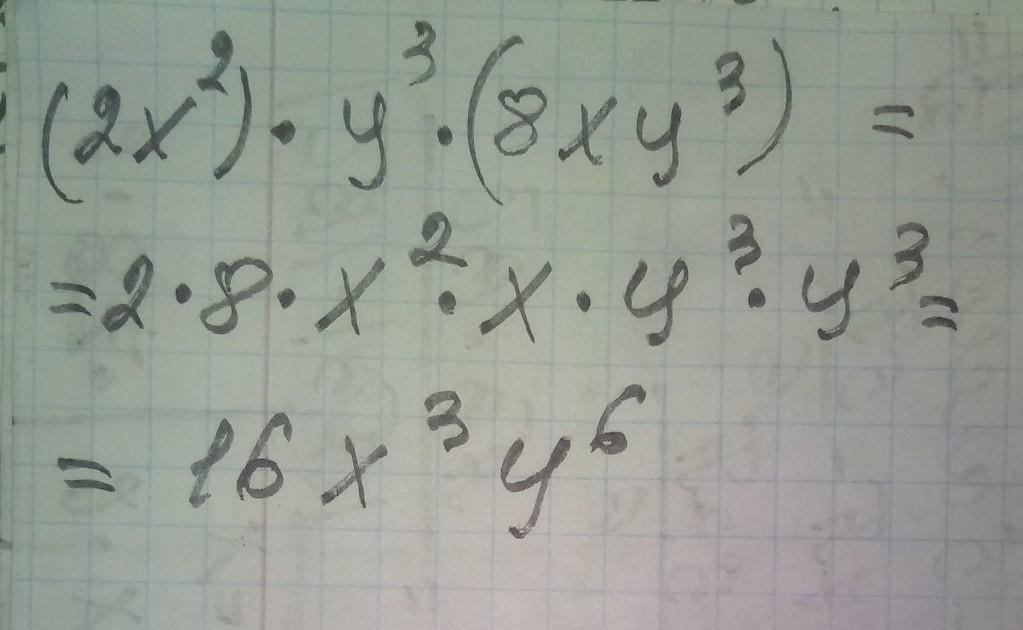 (2x²) · y³ · (8xy³) =
= 2 · 8 · x² · x · y³ · y³ =
= 16x³y⁶